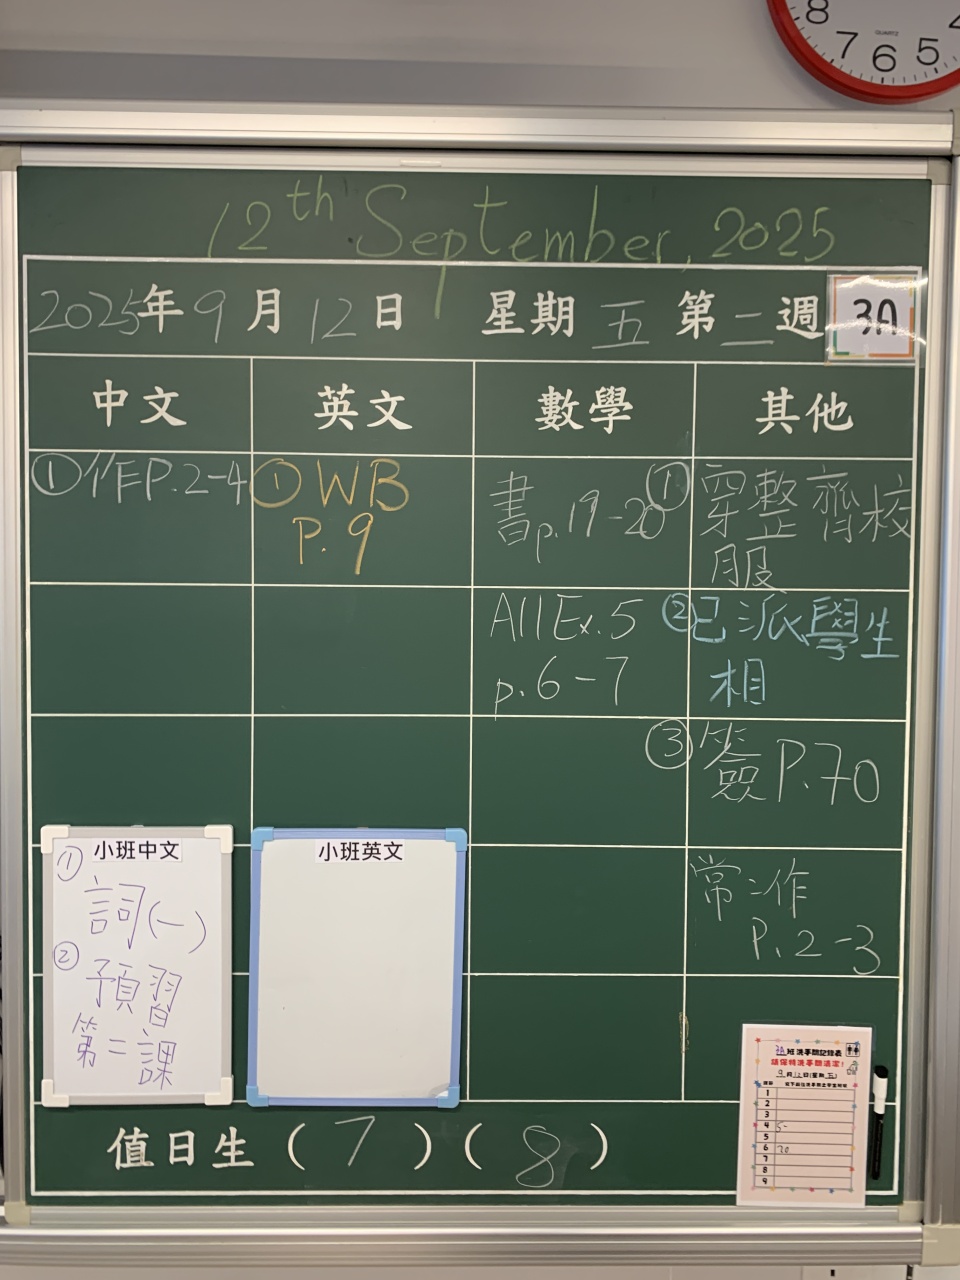 8 7 6 5
QUARTZ
12th September, 2025
2025年9月12日 星期五 第二週 3A
中文 英文 數學 其他
①作P.2-4
①WB
P.9
書p.19-20
①穿整齊校
服
All Ex.5
p.6-7
②已派學生
相
③簽P.70
常:作
P.2-3
小班中文
①
詞(一)
②
預習
第二課
小班英文
9月12日(星期五)
1
2
3
4 5-
5
6 20
7
8
9
值日生(7)(8)